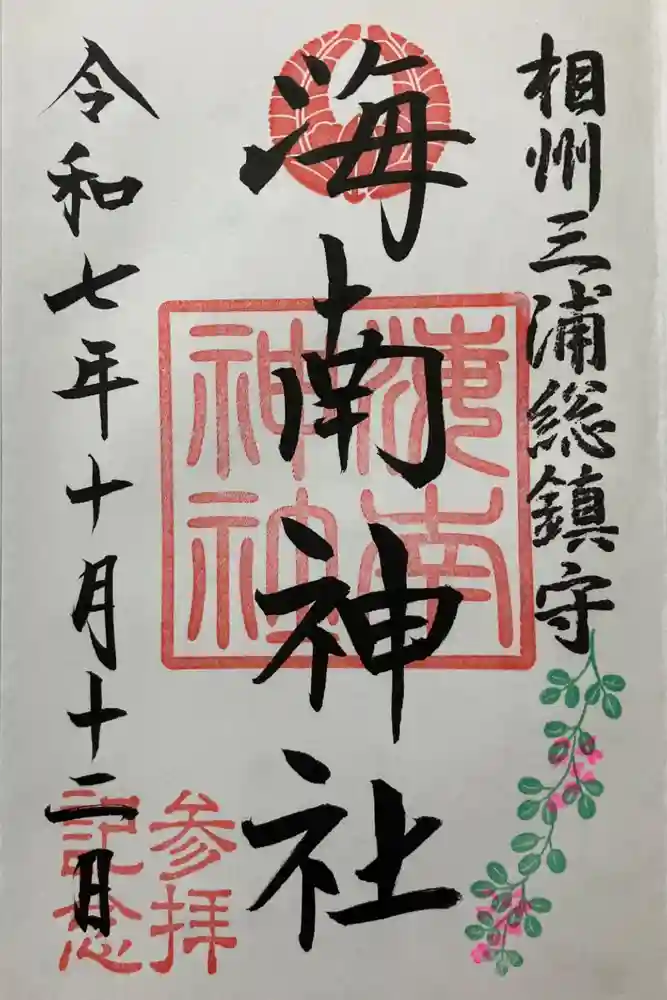 相州三浦総鎮守
海南神社
海南神社
参拝記念
令和七年十月十二日